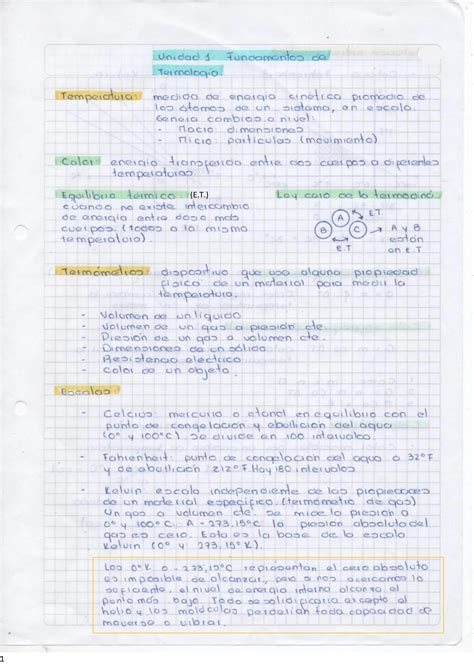 Unidad 1 Fundamentos de
Termología
Temperatura: medida de energía cinética promedio de
los átomos de un sistema, en escala.
Genera cambios a nivel:
- Macro: dimensiones
- Micro: partículas (movimiento)
Calor: energía transferida entre dos cuerpos a diferentes
temperaturas.
Equilibrio térmico (E.T.)
cuando no existe intercambio
de energía entre dos o más
cuerpos. (Todos a la misma
temperatura).
Ley cero de la termodiná
A E.T.
B C → A y B
están
E.T en E.T
Termómetros: dispositivo que usa alguna propiedad
física de un material para medir la
temperatura.
- Volumen de un líquido
- Volumen de un gas a presión cte.
- Presión de un gas a volumen cte.
- Dimensiones de un sólido
- Resistencia eléctrica
- Color de un objeto.
Escalas
- Celcius: mercurio o etanol en equilibrio con el
punto de congelación y ebullición del agua
(0° y 100°C). Se divide en 100 intervalos.
- Fahrenheit: punto de congelación del agua a 32°F
y de ebullición 212°F. Hay 180 intervalos
- Kelvin: escala independiente de las propiedades
de un material específico. (termómetro de gas)
Un gas a volumen cte. se mide la presión a
0° y 100°C. A -273,15°C la presión absoluta del
gas es cero. Esto es la base de la escala
Kelvin (0° y 273,15°K).
Los 0°K o -273,15°C representan el cero absoluto
es imposible de alcanzar, pero si nos acercamos lo
suficiente, el nivel de energía interna alcanza el
punto más bajo. Todo se solidificaría excepto el
helio y las moléculas perderían toda capacidad de
moverse o vibrar.
1